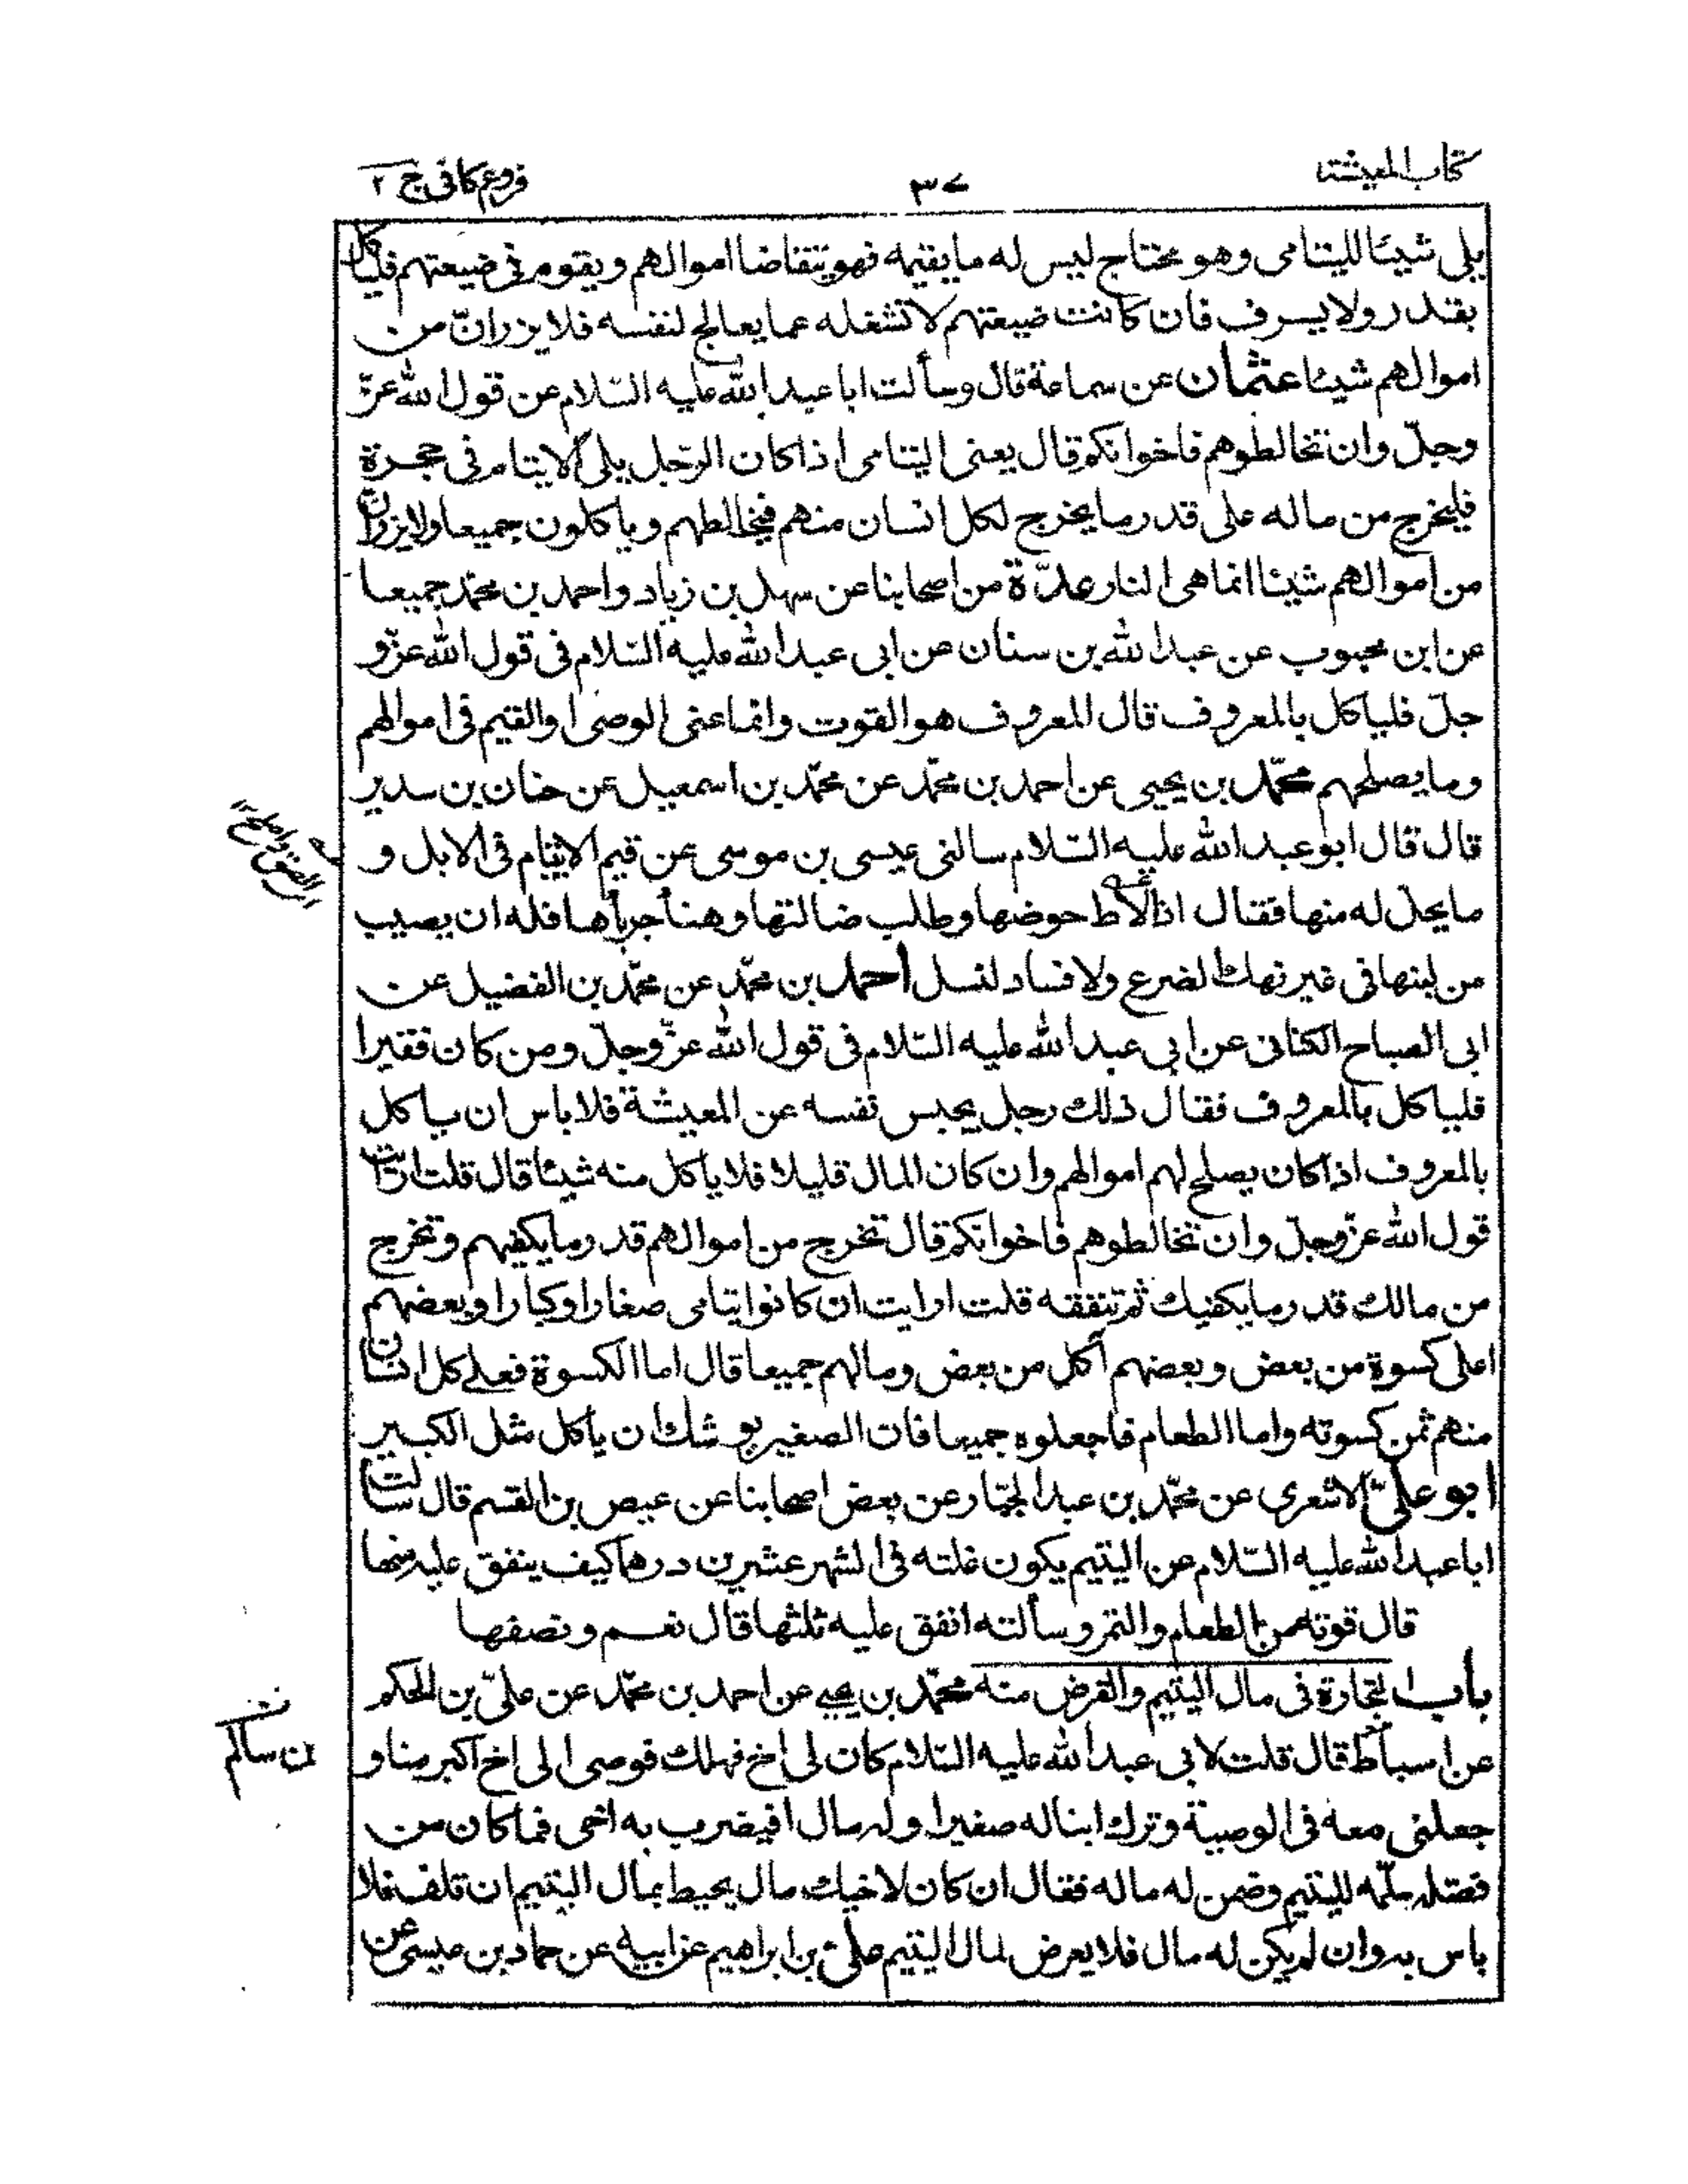 كتاب المعيشة
٣٧
فروع كافى ج ٢
يلى شيئا لليتامى وهو محتاج ليس له ما يقيمه فهو يتقاضا اموالهم ويقوم فى ضيعتهم فلياكل
بقدر ولا يسرف فان كانت ضيعتهم لا تشغله عما يعالج لنفسه فلا يزرانّ من
اموالهم شيئا عثمان عن سماعة قال وسألت ابا عبد الله عليه السّلام عن قول الله عزّ
وجلّ وان تخالطوهم فاخوانكم قال يعنى اليتامى اذا كان الرّجل يلى الايتام فى حجرة
فليخرج من ماله على قدر ما يخرج لكل انسان منهم فيخالطهم وياكلون جميعا ولا يزرانّ
من اموالهم شيئا انما هى النار عدّة من اصحابنا عن سهل بن زياد واحمد بن محمّد جميعا
عن ابن محبوب عن عبد الله بن سنان عن ابى عبد الله عليه السّلام فى قول الله عزّ و
جلّ فلياكل بالمعروف قال المعروف هو القوت وانما عنى الوصى او القيم فى اموالهم
وما يصلحهم محمّد بن يحيى عن احمد بن محمّد عن محمّد بن اسمعيل عن حنان بن سدير
قال قال ابو عبد الله عليه السّلام سالنى عيسى بن موسى عن قيم الايتام فى الابل و
ما يحل له منها فقال اذا لاط حوضها وطلب ضالتها وهنأ جرباها فله ان يصيب
من لبنها فى غير نهك لضرع ولا فساد لنسل أحمد بن محمّد عن محمّد بن الفضيل عن
ابى الصباح الكنانى عن ابى عبد الله عليه السّلام فى قول الله عزّ وجلّ ومن كان فقيرا
فلياكل بالمعروف فقال ذلك رجل يحبس نفسه عن المعيشة فلا باس ان ياكل
بالمعروف اذا كان يصلح لهم اموالهم وان كان المال قليلا فلا يأكل منه شيئا قال قلت ارايت
قول الله عزّ وجلّ وان تخالطوهم فاخوانكم قال تخرج من اموالهم قدر ما يكفيهم وتخرج
من مالك قدر ما يكفيك ثم تنفقه قلت ارايت ان كانوا يتامى صغارا وكبارا وبعضهم
اعلى كسوة من بعض وبعضهم آكل من بعض ومالهم جميعا قال اما الكسوة فعلى كل انسان
منهم ثمن كسوته واما الطعام فاجعلوه جميعا فان الصغير يوشك ان ياكل مثل الكبير
ابو علىّ الاشعرى عن محمّد بن عبد الجبّار عن بعض اصحابنا عن عيص بن القسم قال سالت
ابا عبد الله عليه السّلام عن اليتيم يكون غلته فى الشهر عشرين درهما كيف ينفق عليه منها
قال قوته من الطعام والتمر وسألته انفق عليه ثلثها قال نعم ونصفها
باب التجارة فى مال اليتيم والقرض منه محمّد بن يحيى عن احمد بن محمّد عن علىّ بن الحكم
عن اسباط قال قلت لابى عبد الله عليه السّلام كان لى اخ فهلك فوصى الى اخ اكبر منا و
بن سالم
جعلنى معه فى الوصية وترك ابنا له صغيرا وله مال افيضرب به اخى فما كان من
فضل سلّمه لليتيم وضمن له ماله فقال ان كان لاخيك مال يحيط بمال اليتيم ان تلف فلا
باس به وان لم يكن له مال فلا يعرض لمال اليتيم علىّ بن ابراهيم عن ابيه عن حماد بن عيسى عن